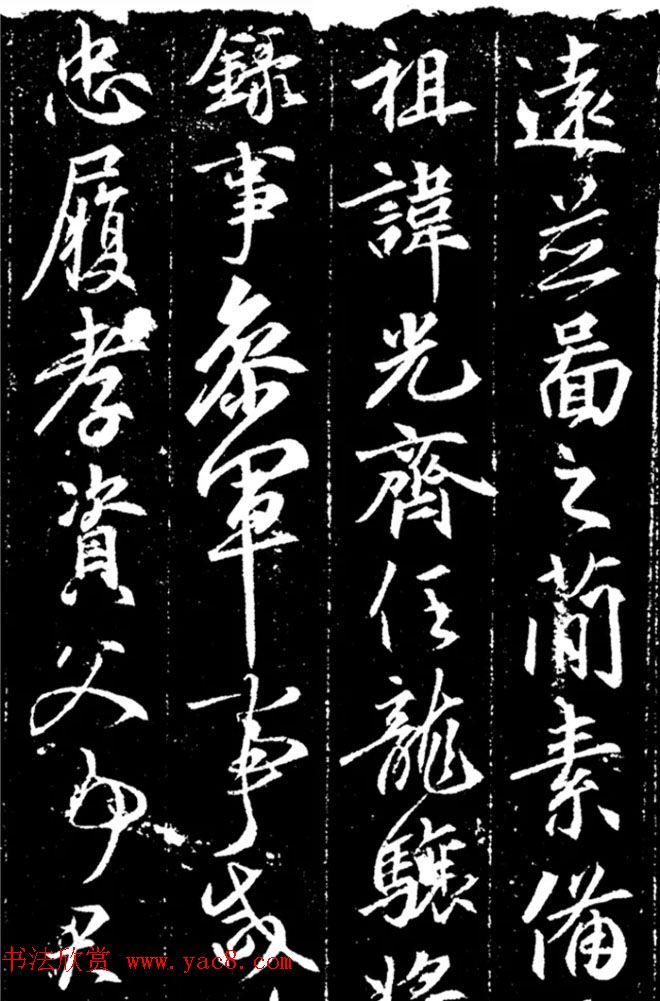 遠並啚之蕳素備
祖諱光齊任龍驤將
錄事叅軍事咸
忠履孝資父事君
书法欣赏 www.yac8.com